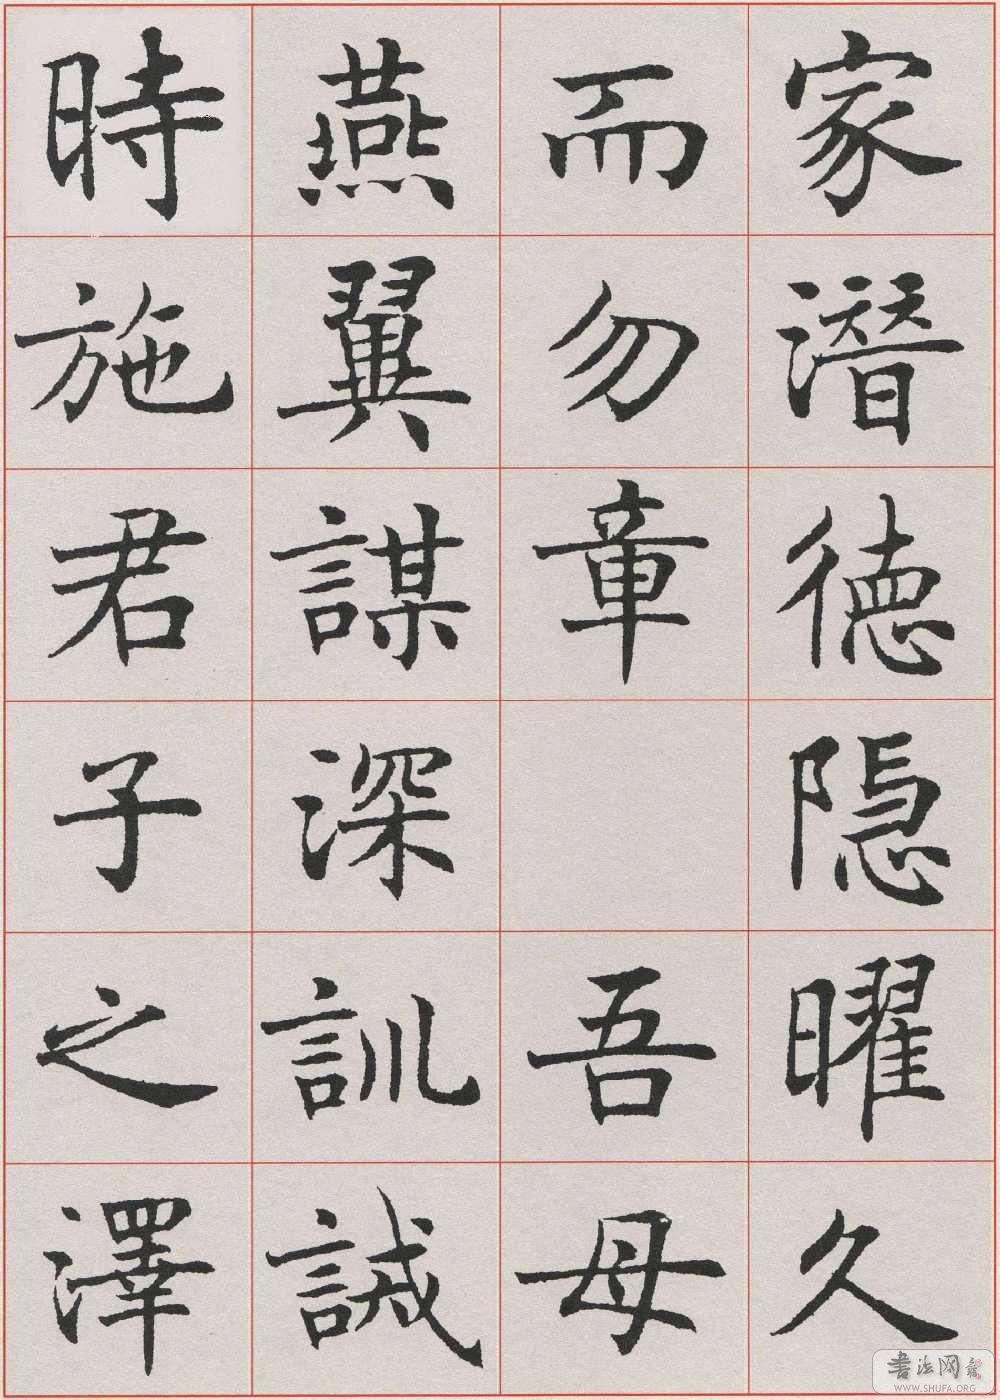 家潛德隱曜久
而勿章 吾母
燕翼謀深訓誡
時施君子之澤
書法网
WWW.SHUFA.ORG